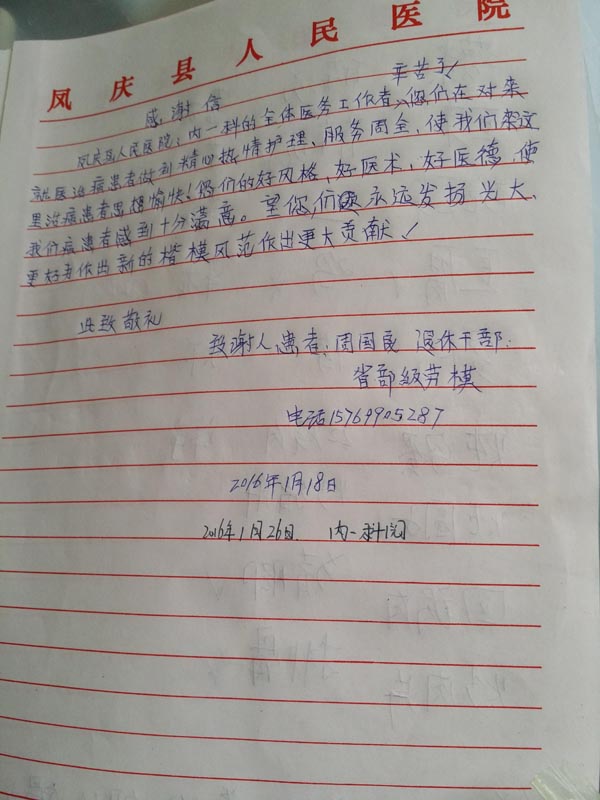 凤庆县人民医院
感谢信
辛苦了!
凤庆县人民医院:内一科的全体医务工作者,您们在对来
就医治病患者做到精心热情护理、服务周全,使我们来这
里治病患者思想愉快!您们的好风格,好医术,好医德,使
我们病患者感到十分满意。望您们永远发扬光大,
更好寻作出新的楷模风范作出更大贡献!
此致敬礼
致谢人患者:周国良 退休干部.
省部级劳模
电话15769905287
2016年1月18日
2016年1月26日. 内一科阅